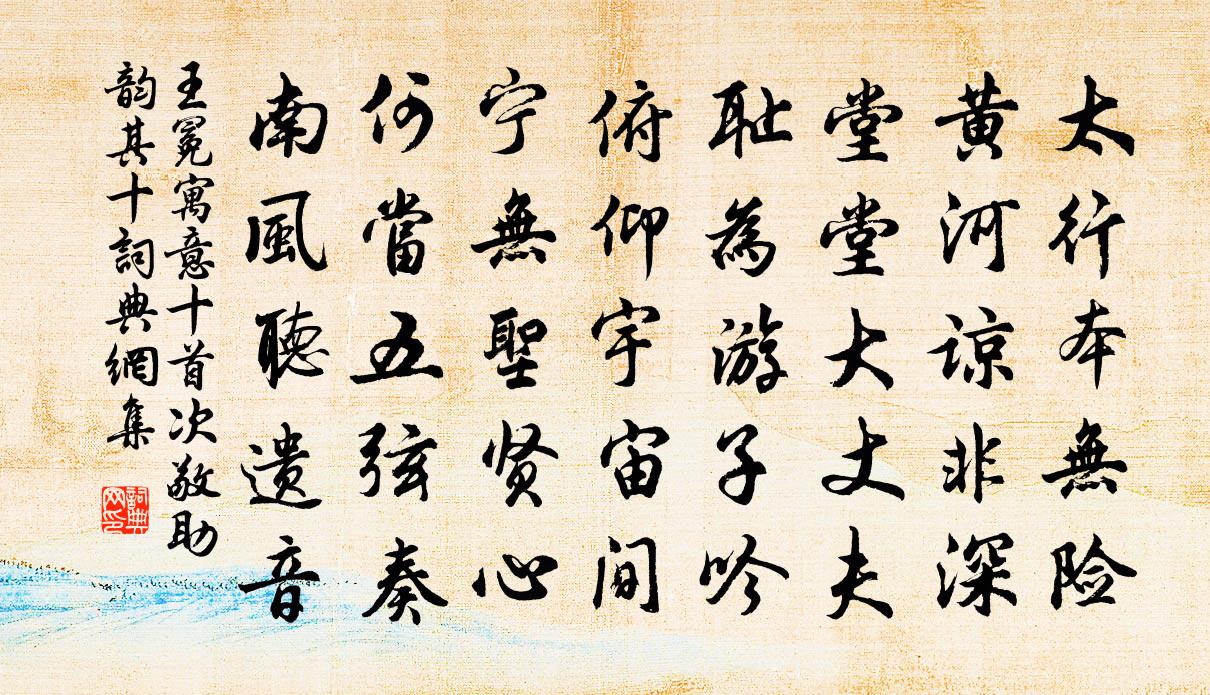 太行本無险
黄河谅非深
堂堂大丈夫
耻為游子吟
俯仰宇宙间
宁無聖贤心
何當五弦奏
南風聽遗音
王冕寓意十首次敬助
韵其十詞典網集
詞典网印